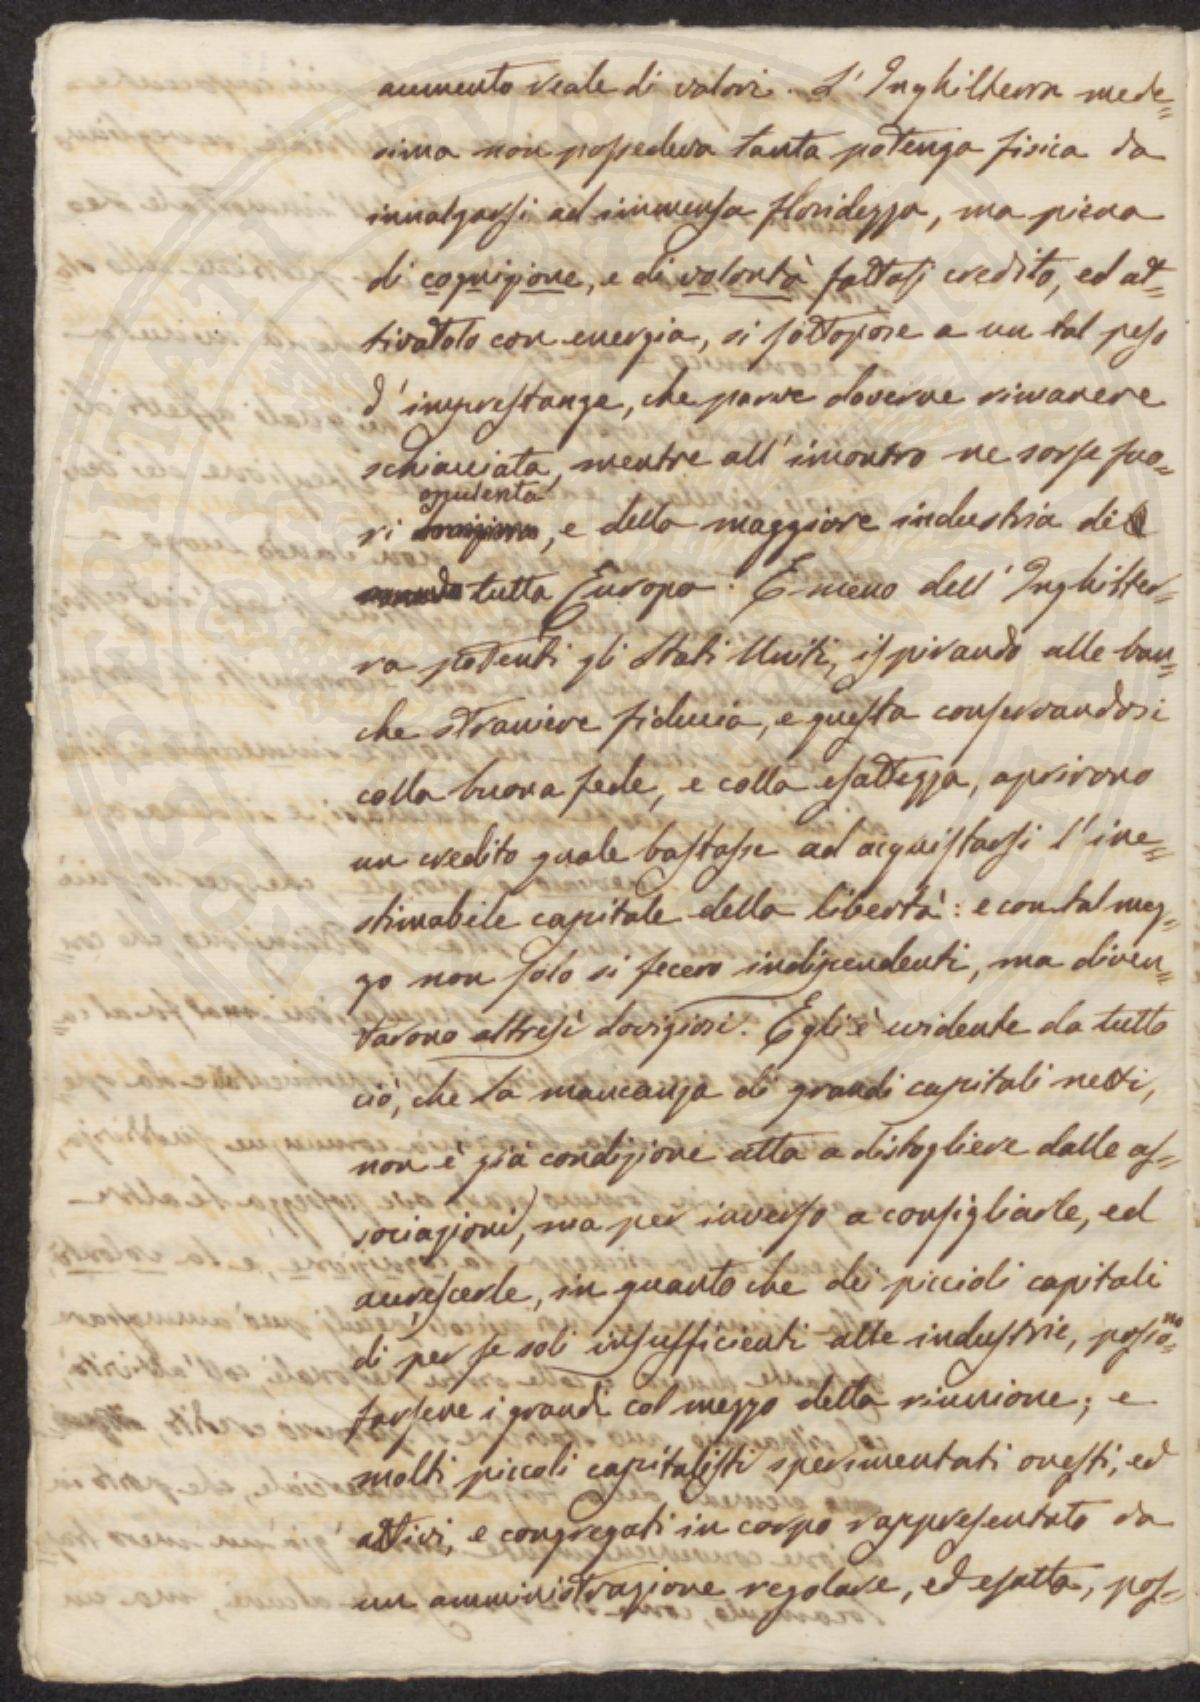 aumento reale di valori. L'Inghilterra mede=
sima non possedeva tanta potenza fisica da
innalzarsi ad immensa floridezza, ma piena
di cognizione, e di volontà fattasi credito, ed at=
tivatolo con energia, si sottopose a un tal peso
d'imprestanze, che parve doverne rimanere
schiacciata, mentre all'incontro ne sorse fuo=
opulenta
ri, e della maggiore industria di
tutta Europa. E meno dell'Inghilter=
ra potenti gli Stati Uniti, ispirando alle ban=
che straniere fiducia, e questa conservandosi
colla buona fede, e colla esattezza, aprirono
un credito quale bastasse ad acquistarsi l'ine=
stimabile capitale della libertà: e con tal mez=
zo non solo si fecero indipendenti, ma diven=
tarono altresì doviziosi. Egli è evidente da tutto
ciò, che la mancanza di grandi capitali netti,
non è già condizione atta a distogliere dalle as=
sociazioni, ma per inverso a consigliarle, ed
accrescerle, in quanto che dei piccioli capitali
di per se soli insufficienti alle industrie, posso=no
farsene i grandi col mezzo della riunione; e
molti piccoli capitalisti sperimentati onesti, ed
attivi, e congregati in corpo rappresentato da
un amministrazione regolare, ed esatta, pos=